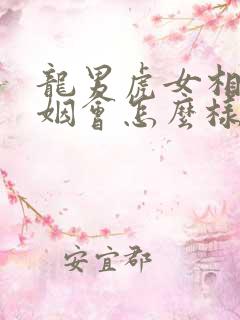 龍男虎女相
姻會怎麼樣
安宜郡